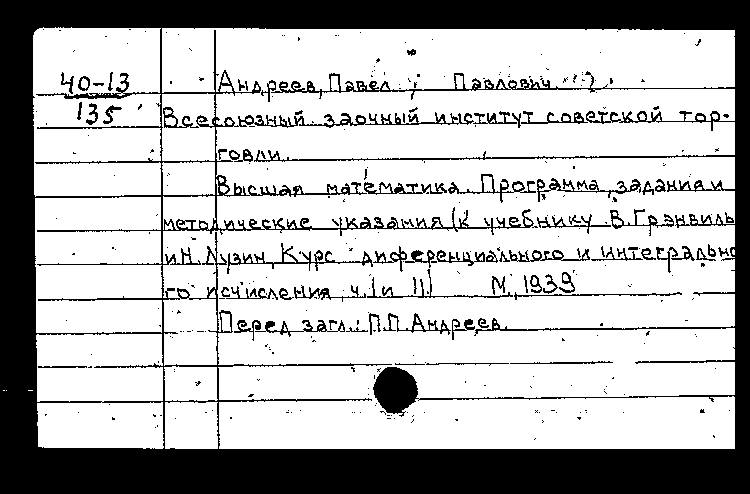 40-13 Андреев, Павел Павлович 2
135 Всесоюзный заочный институт советской тор-
говли.
Высшая математика. Программа, задания и
методические указания (к учебнику В. Грэнвиль
и Н. Лузин, Курс диференциального и интегрально
го исчисления, ч. I и II) М., 1939
Перед загл.: П.П. Андреев.